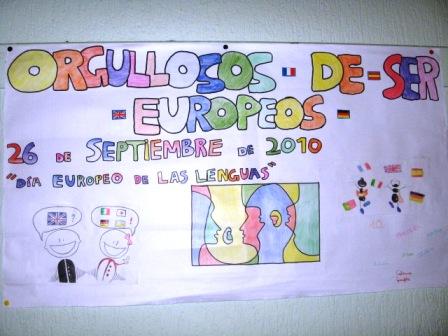 ORGULLOSOS DE SER
EUROPEOS
26 DE SEPTIEMBRE DE 2010
"DÍA EUROPEO DE LAS LENGUAS"
? !